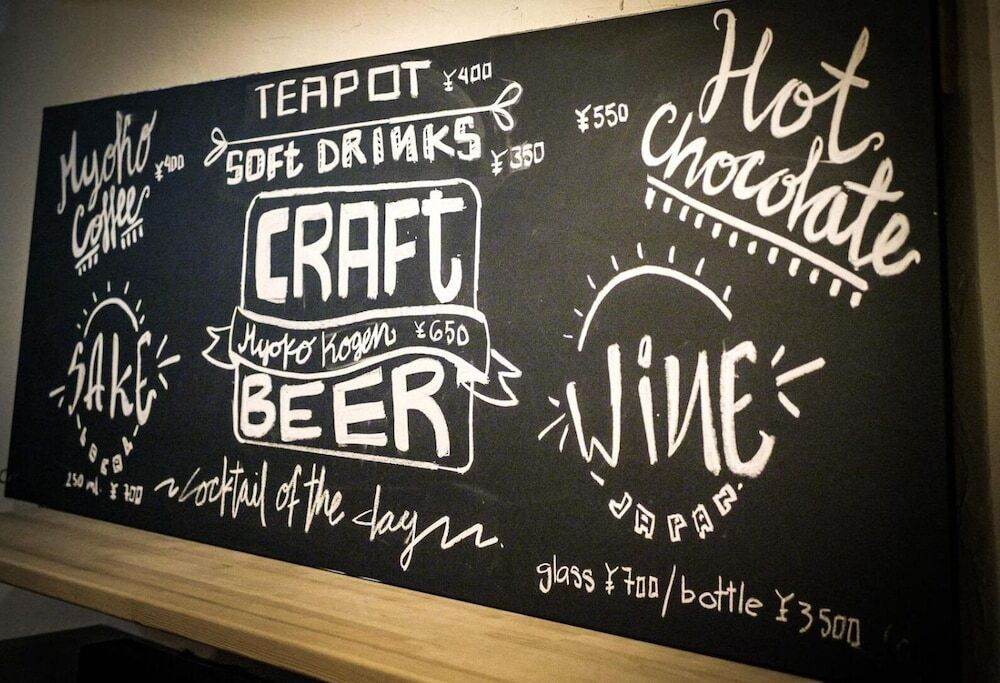 Myoko
Coffee
¥400
TEAPOT ¥400
SOFt DRINKS ¥350
Hot
Chocolate
¥550
CRAFt
Myoko Kogen ¥650
BEER
SAKE
LOCAL
250 ml. ¥700
~cocktail of the day~
WiNE
-JAPAN-
glass ¥700/bottle ¥3500